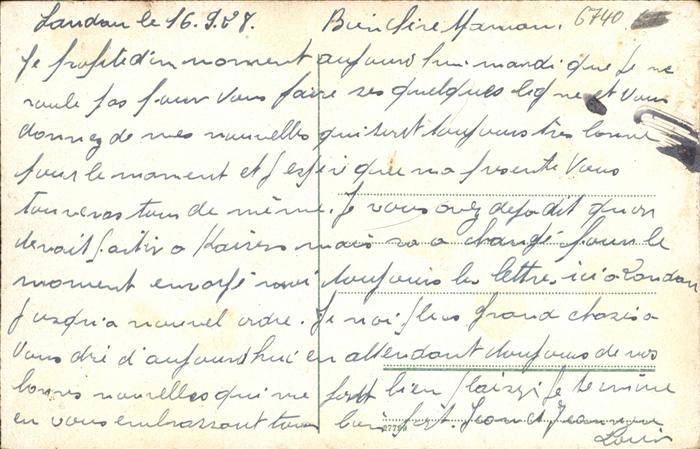 Landau le 16.9.27. Bien chère Maman. 6740
Je profite d'un moment aujourd'hui mardi que je ne
roule pas pour vous faire ses quelques ligne et vous
donnez de mes nouvelles qui sont toujours très bonne
pour le moment et j'espère que ma présente vous
trouveras tous de même. Je vous avez déjà dit qu'on
devait partir a Kaisers mais sa a changé pour le
moment envoyé moi toujours les lettre ici a Landau
jusqu'a nouvel ordre. Je voi plus grand choses a
vous dire d'aujourd'hui en attendant toujours de vos
bonnes nouvelles qui me font bien plaisir je termine
en vous embrassant tous bien fort. Jean et Jeanne
27799 Louis